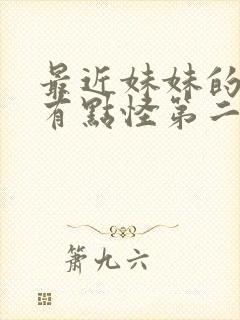 最近妹妹的
有點怪第二
簫九六